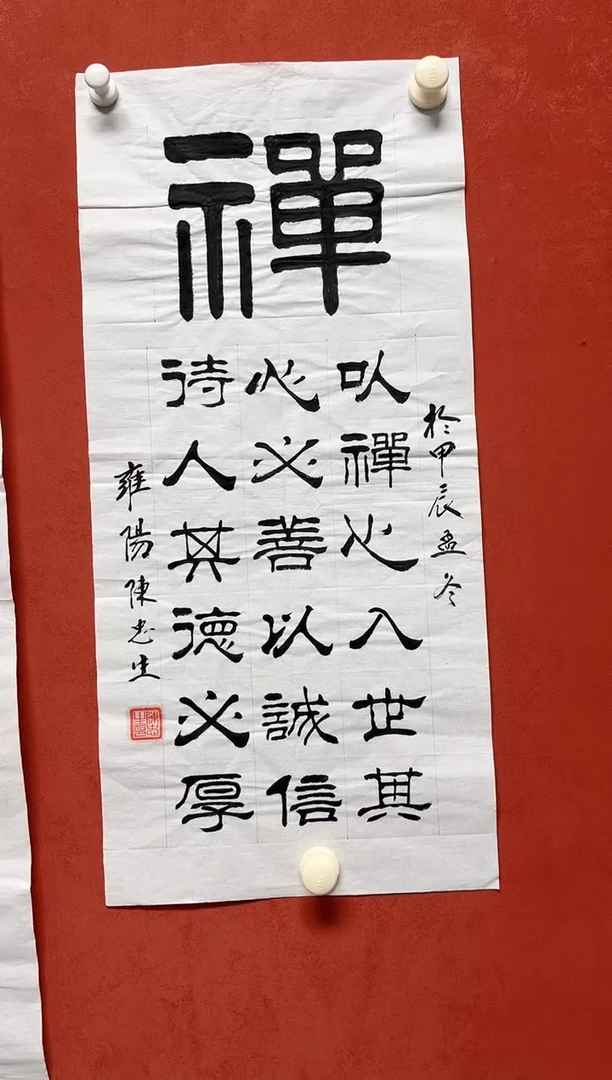 禪
於甲辰孟冬
㕥禪心入世其
心必善以誠信
待人其德必厚
雍陽陳忠生